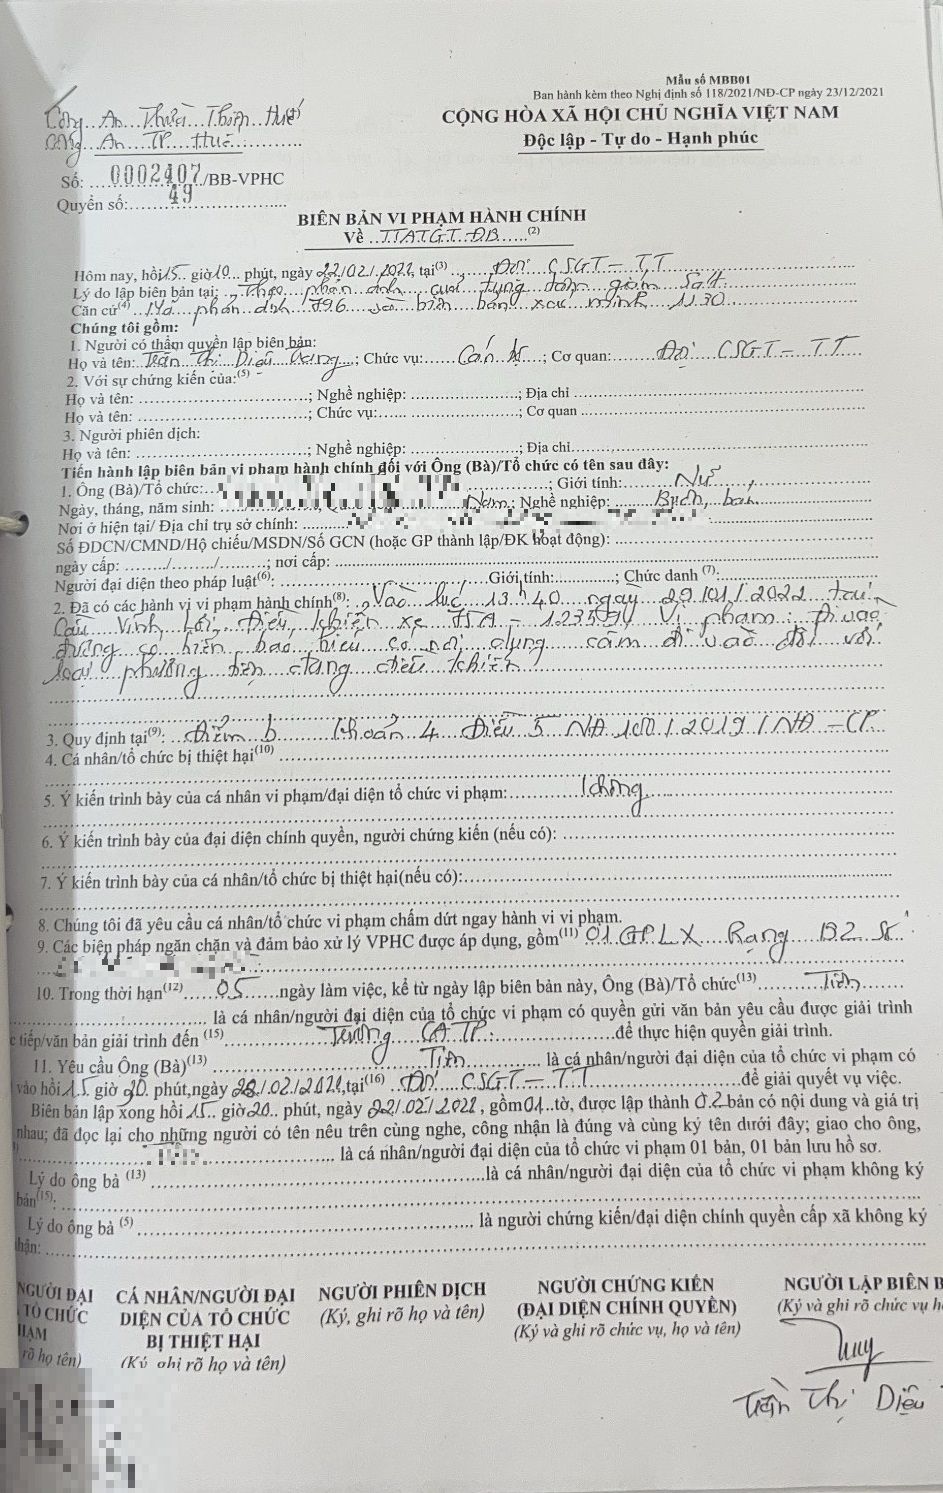 Mẫu số MBB01
Ban hành kèm theo Nghị định số 118/2021/NĐ-CP ngày 23/12/2021
Công An Thừa Thiên Huế
CỘNG HÒA XÃ HỘI CHỦ NGHĨA VIỆT NAM
Công An TP Huế
Độc lập - Tự do - Hạnh phúc
Số: 0002407/BB-VPHC
Quyển số: 49
BIÊN BẢN VI PHẠM HÀNH CHÍNH
Về TTATGT ĐB (2)
Hôm nay, hồi 15 giờ 10 phút, ngày 22/02/2022, tại(3) Đội CSGT - TT
Lý do lập biên bản tại: Theo phản ánh của trung tâm giám sát
Căn cứ(4) Mã phản ánh 796 và biên bản xác minh 1130
Chúng tôi gồm:
1. Người có thẩm quyền lập biên bản:
Họ và tên: Trần Thị Diệu; Chức vụ: Cán bộ; Cơ quan: Đội CSGT - TT
2. Với sự chứng kiến của:(5)
Họ và tên: ; Nghề nghiệp: ; Địa chỉ
Họ và tên: ; Chức vụ: ; Cơ quan
3. Người phiên dịch:
Họ và tên: ; Nghề nghiệp: ; Địa chỉ
Tiến hành lập biên bản vi phạm hành chính đối với Ông (Bà)/Tổ chức có tên sau đây:
1. Ông (Bà)/Tổ chức: ; Giới tính: Nữ
Ngày, tháng, năm sinh: Nam; Nghề nghiệp: Buôn bán
Nơi ở hiện tại/ Địa chỉ trụ sở chính:
Số ĐDCN/CMND/Hộ chiếu/MSDN/Số GCN (hoặc GP thành lập/ĐK hoạt động):
ngày cấp: ..../..../....; nơi cấp:
Người đại diện theo pháp luật(6): Giới tính: ; Chức danh (7):
2. Đã có các hành vi vi phạm hành chính(8): Vào lúc 13h40 ngày 29/01/2022 tại
Cầu Vĩnh Lợi, Điều khiển xe 75A - 1235 Vi phạm: Đi vào
đường có biển báo hiệu có nội dung cấm đi vào đối với
loại phương tiện đang điều khiển
3. Quy định tại(9): Điểm b Khoản 4 Điều 5 NĐ 100/2019/NĐ-CP
4. Cá nhân/tổ chức bị thiệt hại(10)
5. Ý kiến trình bày của cá nhân vi phạm/đại diện tổ chức vi phạm: Không
6. Ý kiến trình bày của đại diện chính quyền, người chứng kiến (nếu có):
7. Ý kiến trình bày của cá nhân/tổ chức bị thiệt hại(nếu có):
8. Chúng tôi đã yêu cầu cá nhân/tổ chức vi phạm chấm dứt ngay hành vi vi phạm.
9. Các biện pháp ngăn chặn và đảm bảo xử lý VPHC được áp dụng, gồm(11) 01 GPLX Hạng B2 số
10. Trong thời hạn(12) 05 ngày làm việc, kể từ ngày lập biên bản này, Ông (Bà)/Tổ chức(13)
là cá nhân/người đại diện của tổ chức vi phạm có quyền gửi văn bản yêu cầu được giải trình
c tiếp/văn bản giải trình đến (15) Trưởng CATP để thực hiện quyền giải trình.
11. Yêu cầu Ông (Bà)(13) là cá nhân/người đại diện của tổ chức vi phạm có
vào hồi 15 giờ 30 phút, ngày 28/02/2022, tại(16) Đội CSGT - TT để giải quyết vụ việc.
Biên bản lập xong hồi 15 giờ 20 phút, ngày 22/02/2022, gồm 01 tờ, được lập thành 02 bản có nội dung và giá trị
nhau; đã đọc lại cho những người có tên nêu trên cùng nghe, công nhận là đúng và cùng ký tên dưới đây; giao cho ông,
là cá nhân/người đại diện của tổ chức vi phạm 01 bản, 01 bản lưu hồ sơ.
Lý do ông bà (13) là cá nhân/người đại diện của tổ chức vi phạm không ký
bản(15):
Lý do ông bà (5) là người chứng kiến/đại diện chính quyền cấp xã không ký
hận:
NGƯỜI ĐẠI
TỔ CHỨC
HẠM
rõ họ tên)
CÁ NHÂN/NGƯỜI ĐẠI
DIỆN CỦA TỔ CHỨC
BỊ THIỆT HẠI
(Ký, ghi rõ họ và tên)
NGƯỜI PHIÊN DỊCH
(Ký, ghi rõ họ và tên)
NGƯỜI CHỨNG KIẾN
(ĐẠI DIỆN CHÍNH QUYỀN)
(Ký và ghi rõ chức vụ, họ và tên)
NGƯỜI LẬP BIÊN B
(Ký và ghi rõ chức vụ h
Trần Thị Diệu